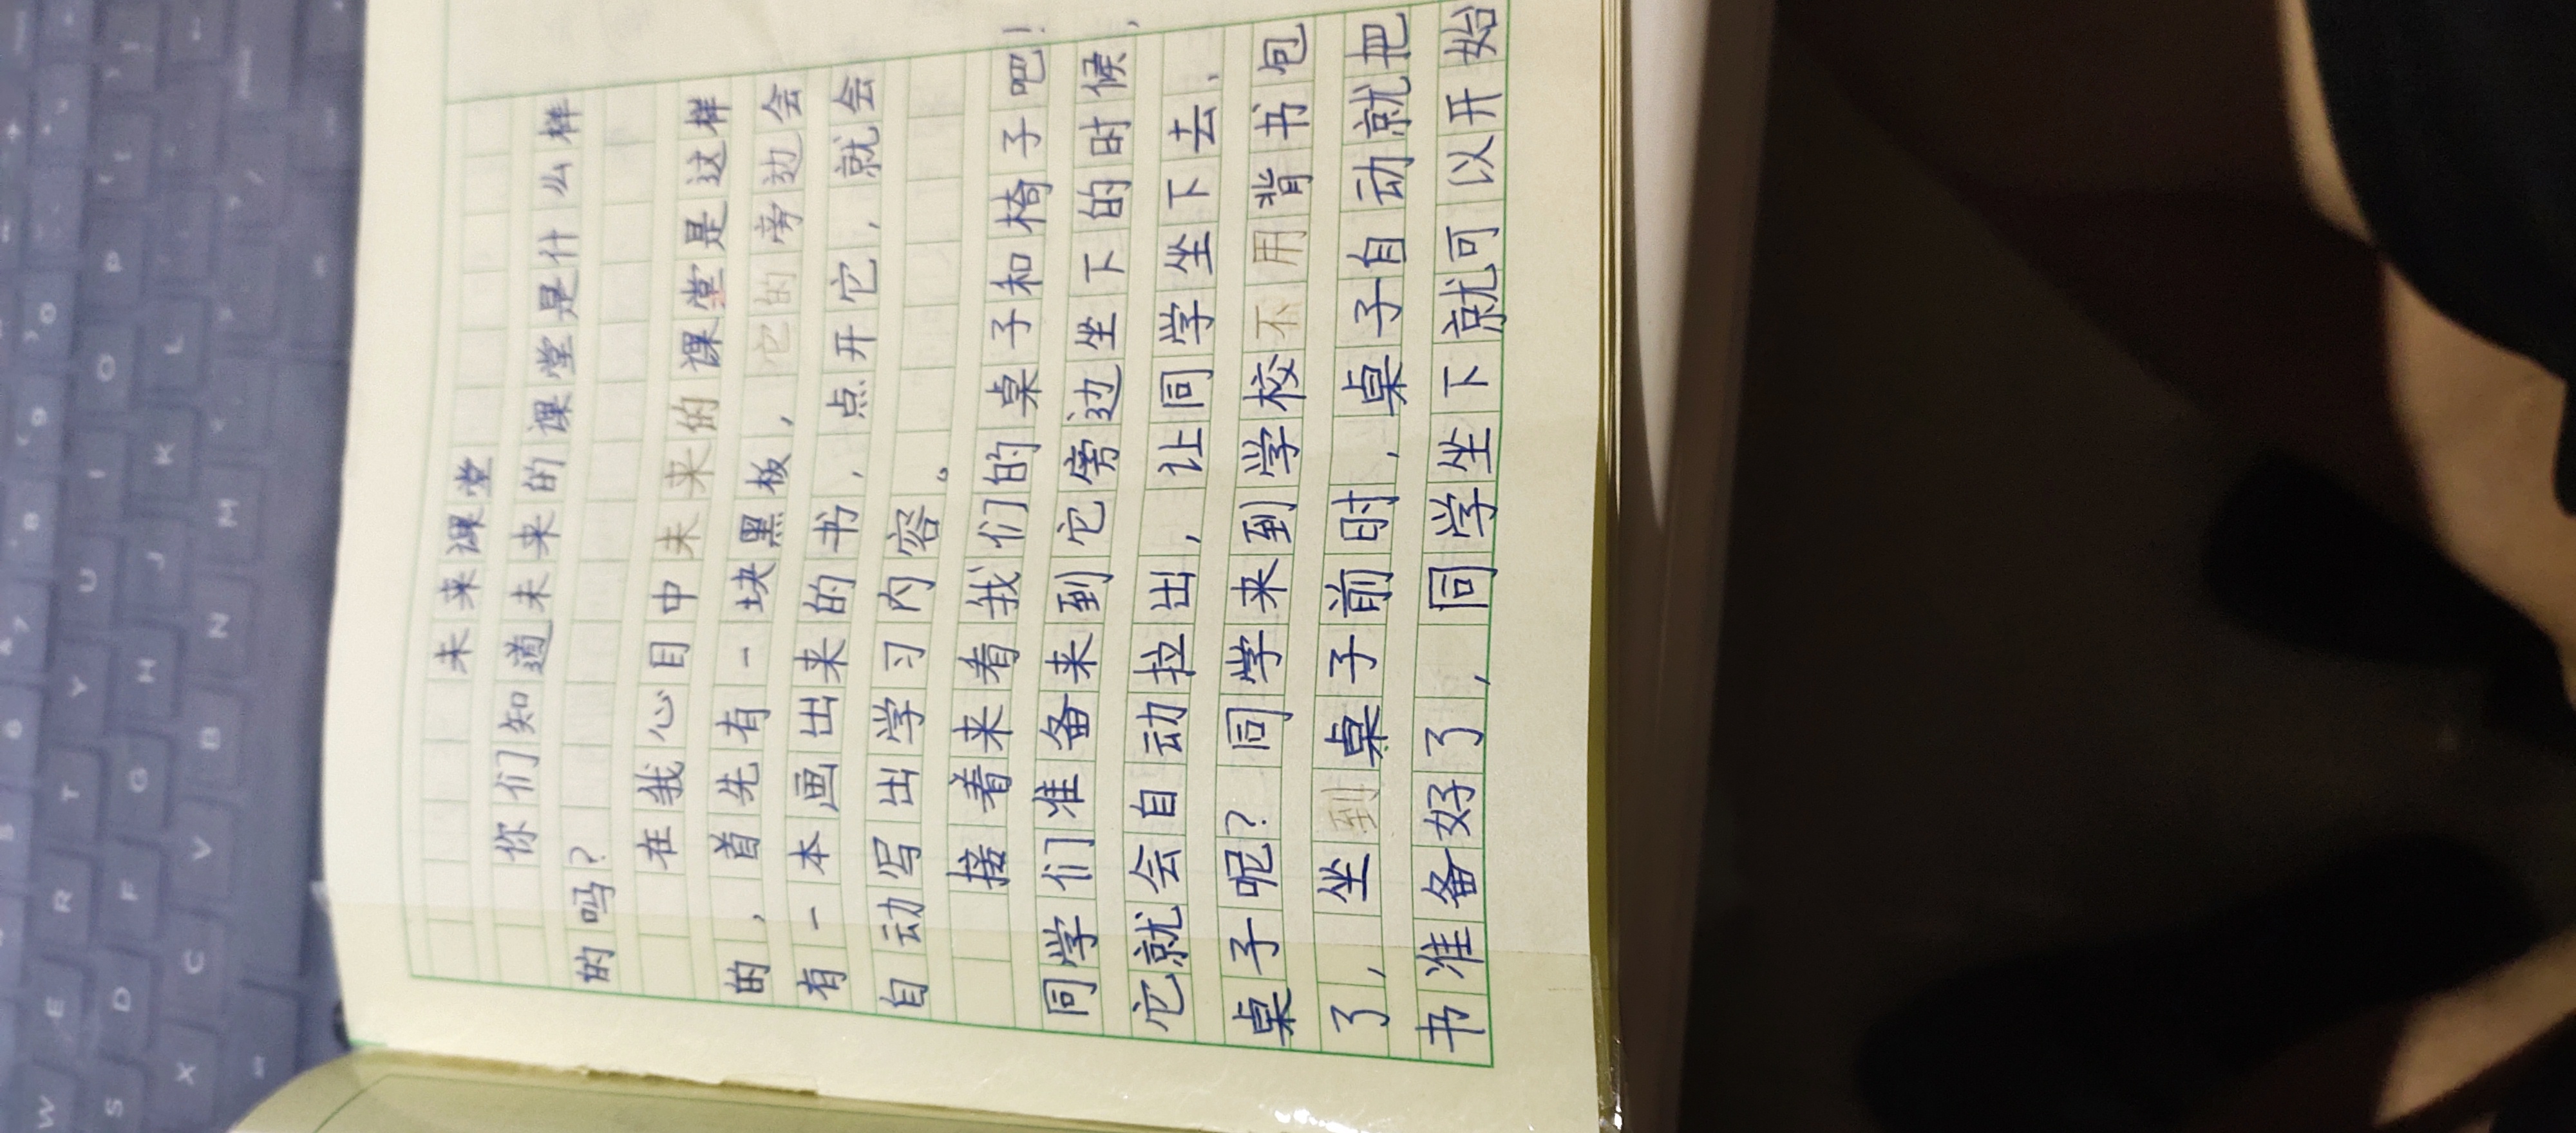 未来课堂
你们知道未来的课堂是什么样
的吗?
在我心目中未来的课堂是这样
的,首先有一块黑板,它的旁边会
有一本画出来的书,点开它,就会
自动写出学习内容。
接着来看我们的桌子和椅子吧!
同学们准备来到它旁边坐下的时候,
它就会自动拉出,让同学坐下去.
桌子呢?同学来到学校不用背书包
了,坐到桌子前时,桌子自动就把
书准备好了,同学坐下就可以开始